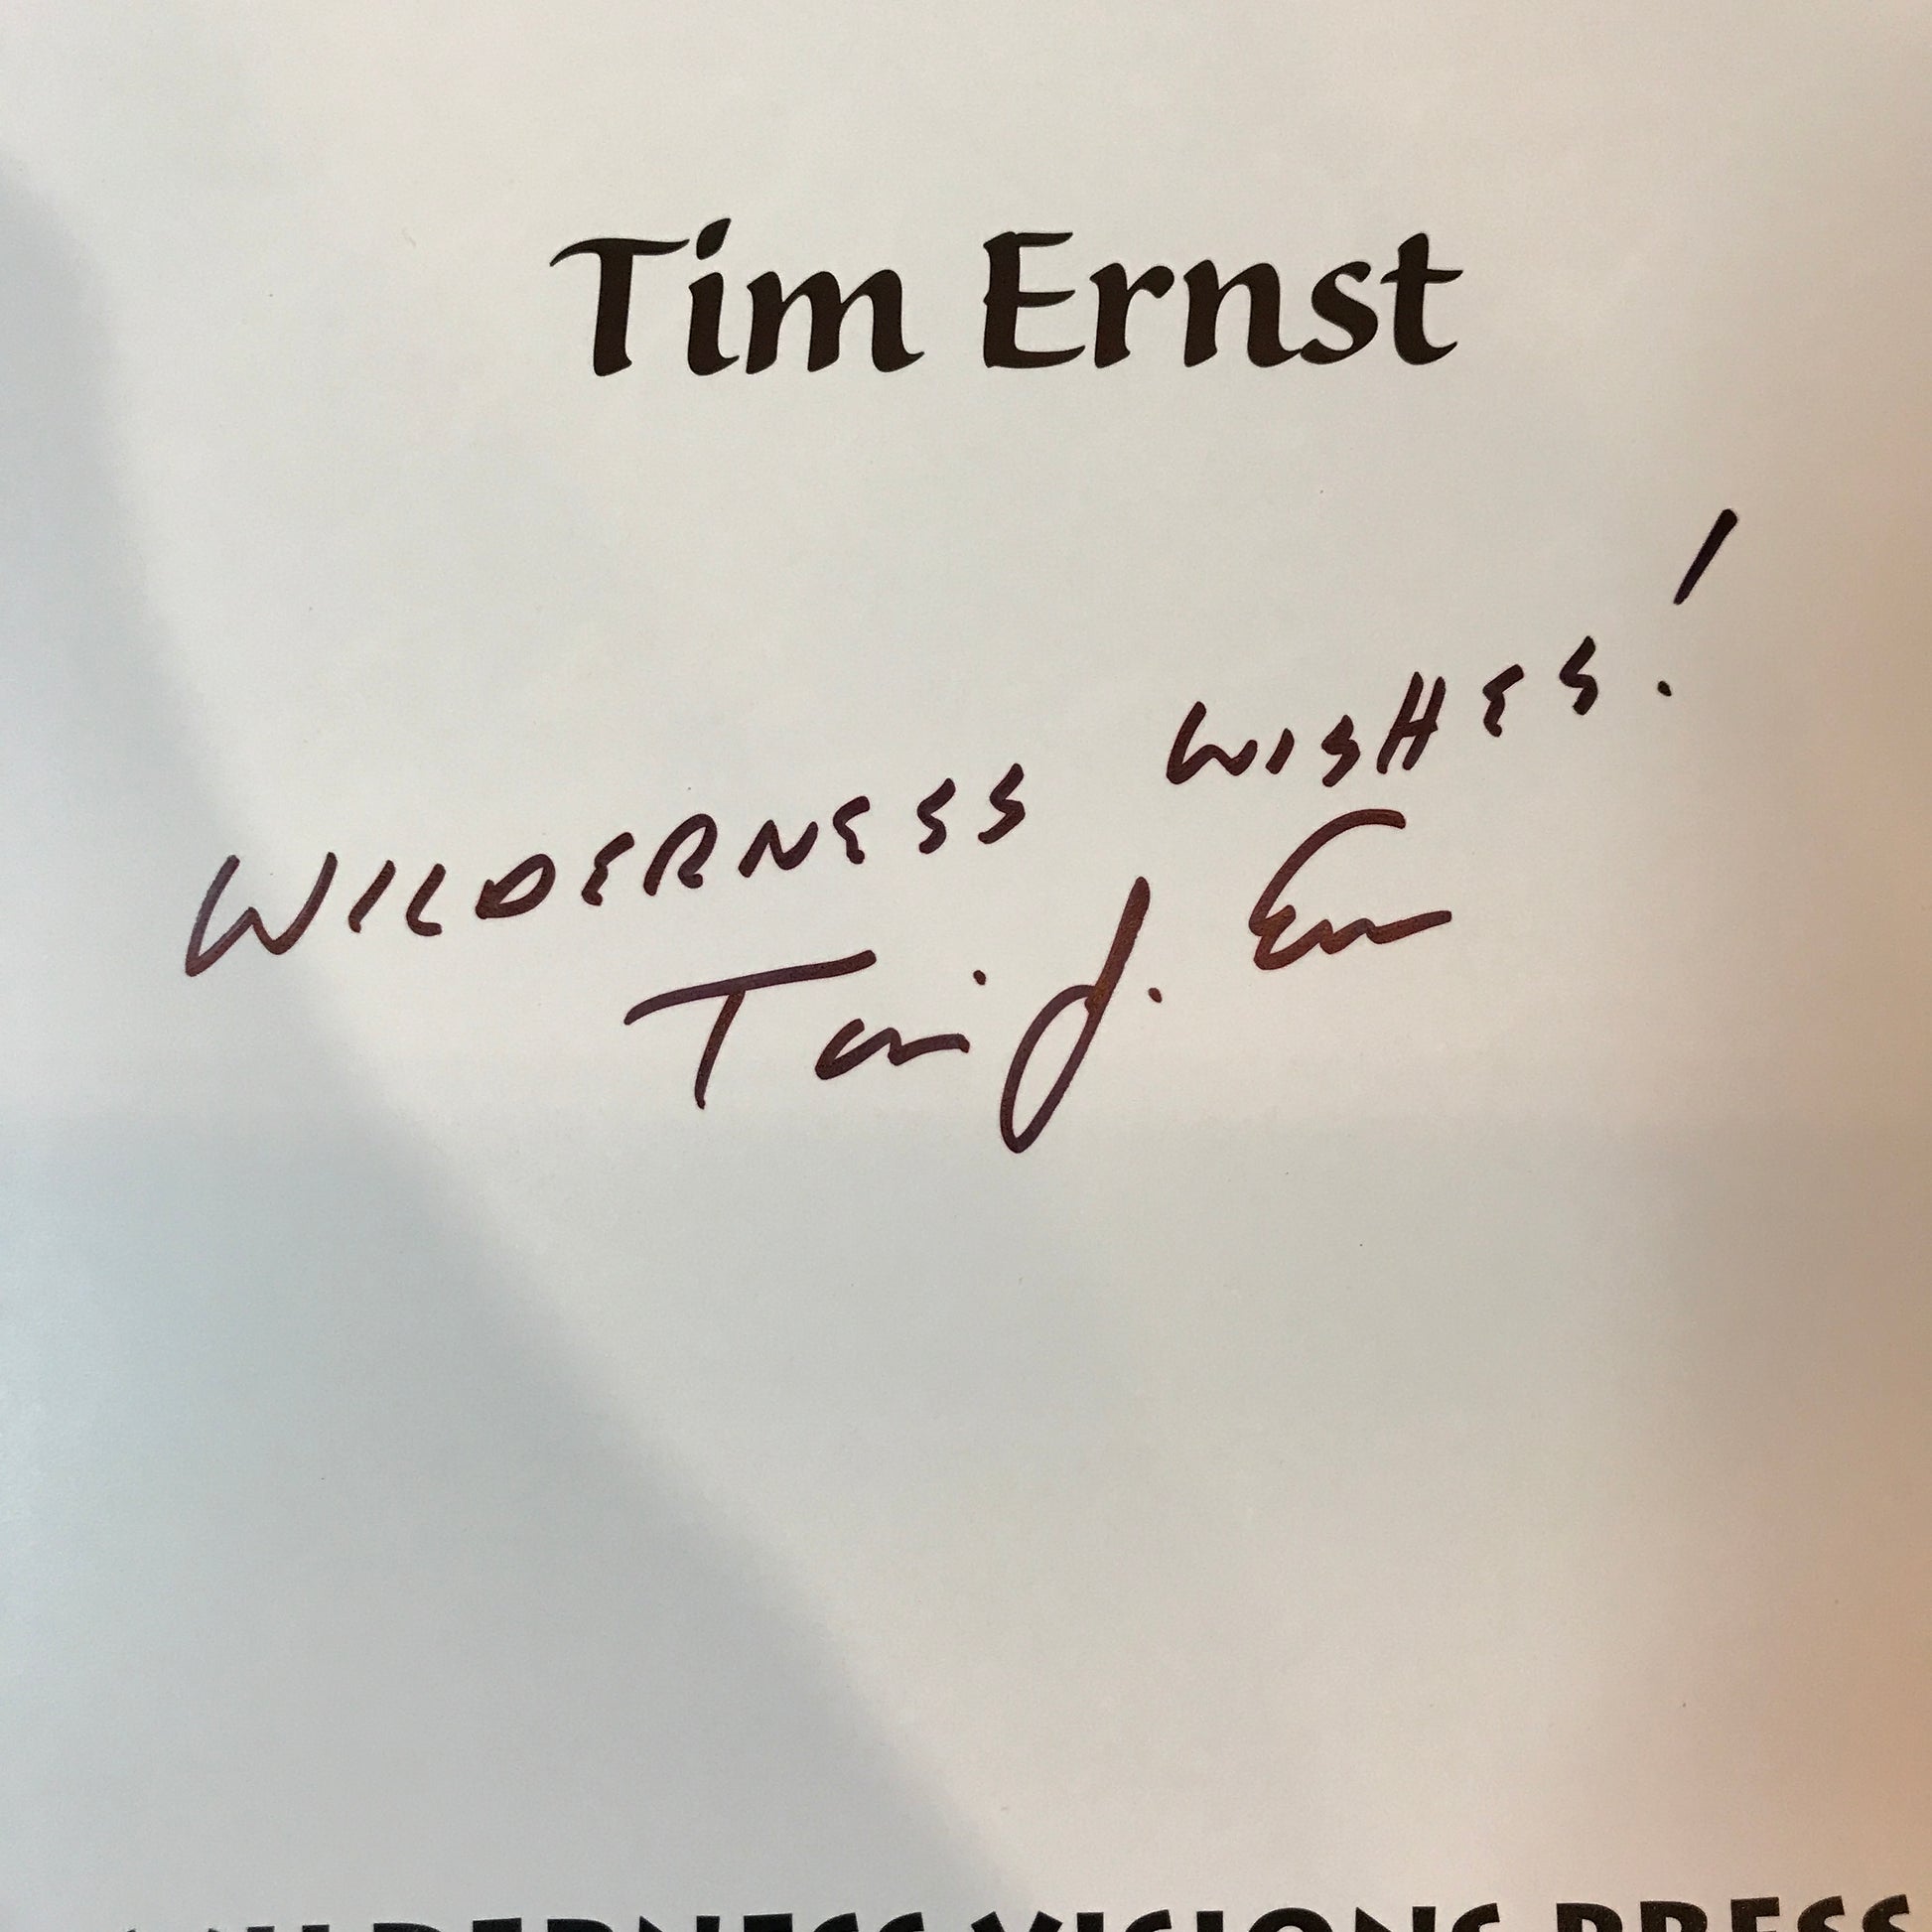 Tim Ernst
WILDERNESS WISHES!
Tim J. Ernst
WILDERNESS VISIONS PRESS